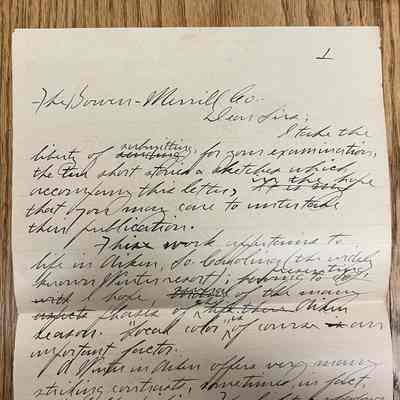 1
The Bowen-Merrill Co.
Dear Sirs;
I take the
liberty of submitting, for your examination,
the ten short stories & sketches which
accompany this letter, in the hope
that you may care to undertake
their publication.
These work appertains to
life in Aiken, So. Carolina, (the widely
known Winter resort);
I hope, of the many
phases of Aiken
season. "Local color" is of course an
important factor.
A Winter in Aiken offers very many
striking contrasts, sometimes, in fact,